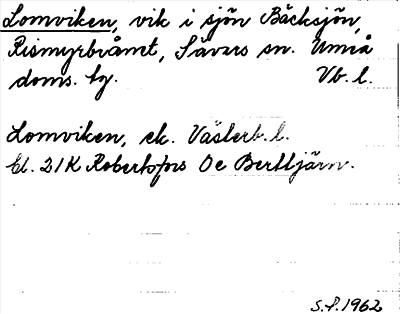 Lomviken, vik i sjön Bäcksjön,
Rismyrbrånet, Sävars sn. Umeå
doms. hg. Vb. l.
Lomviken, ek. Västerb. l.
El. 21K Robertsfors Oc Berttjärn.
S.P. 1962